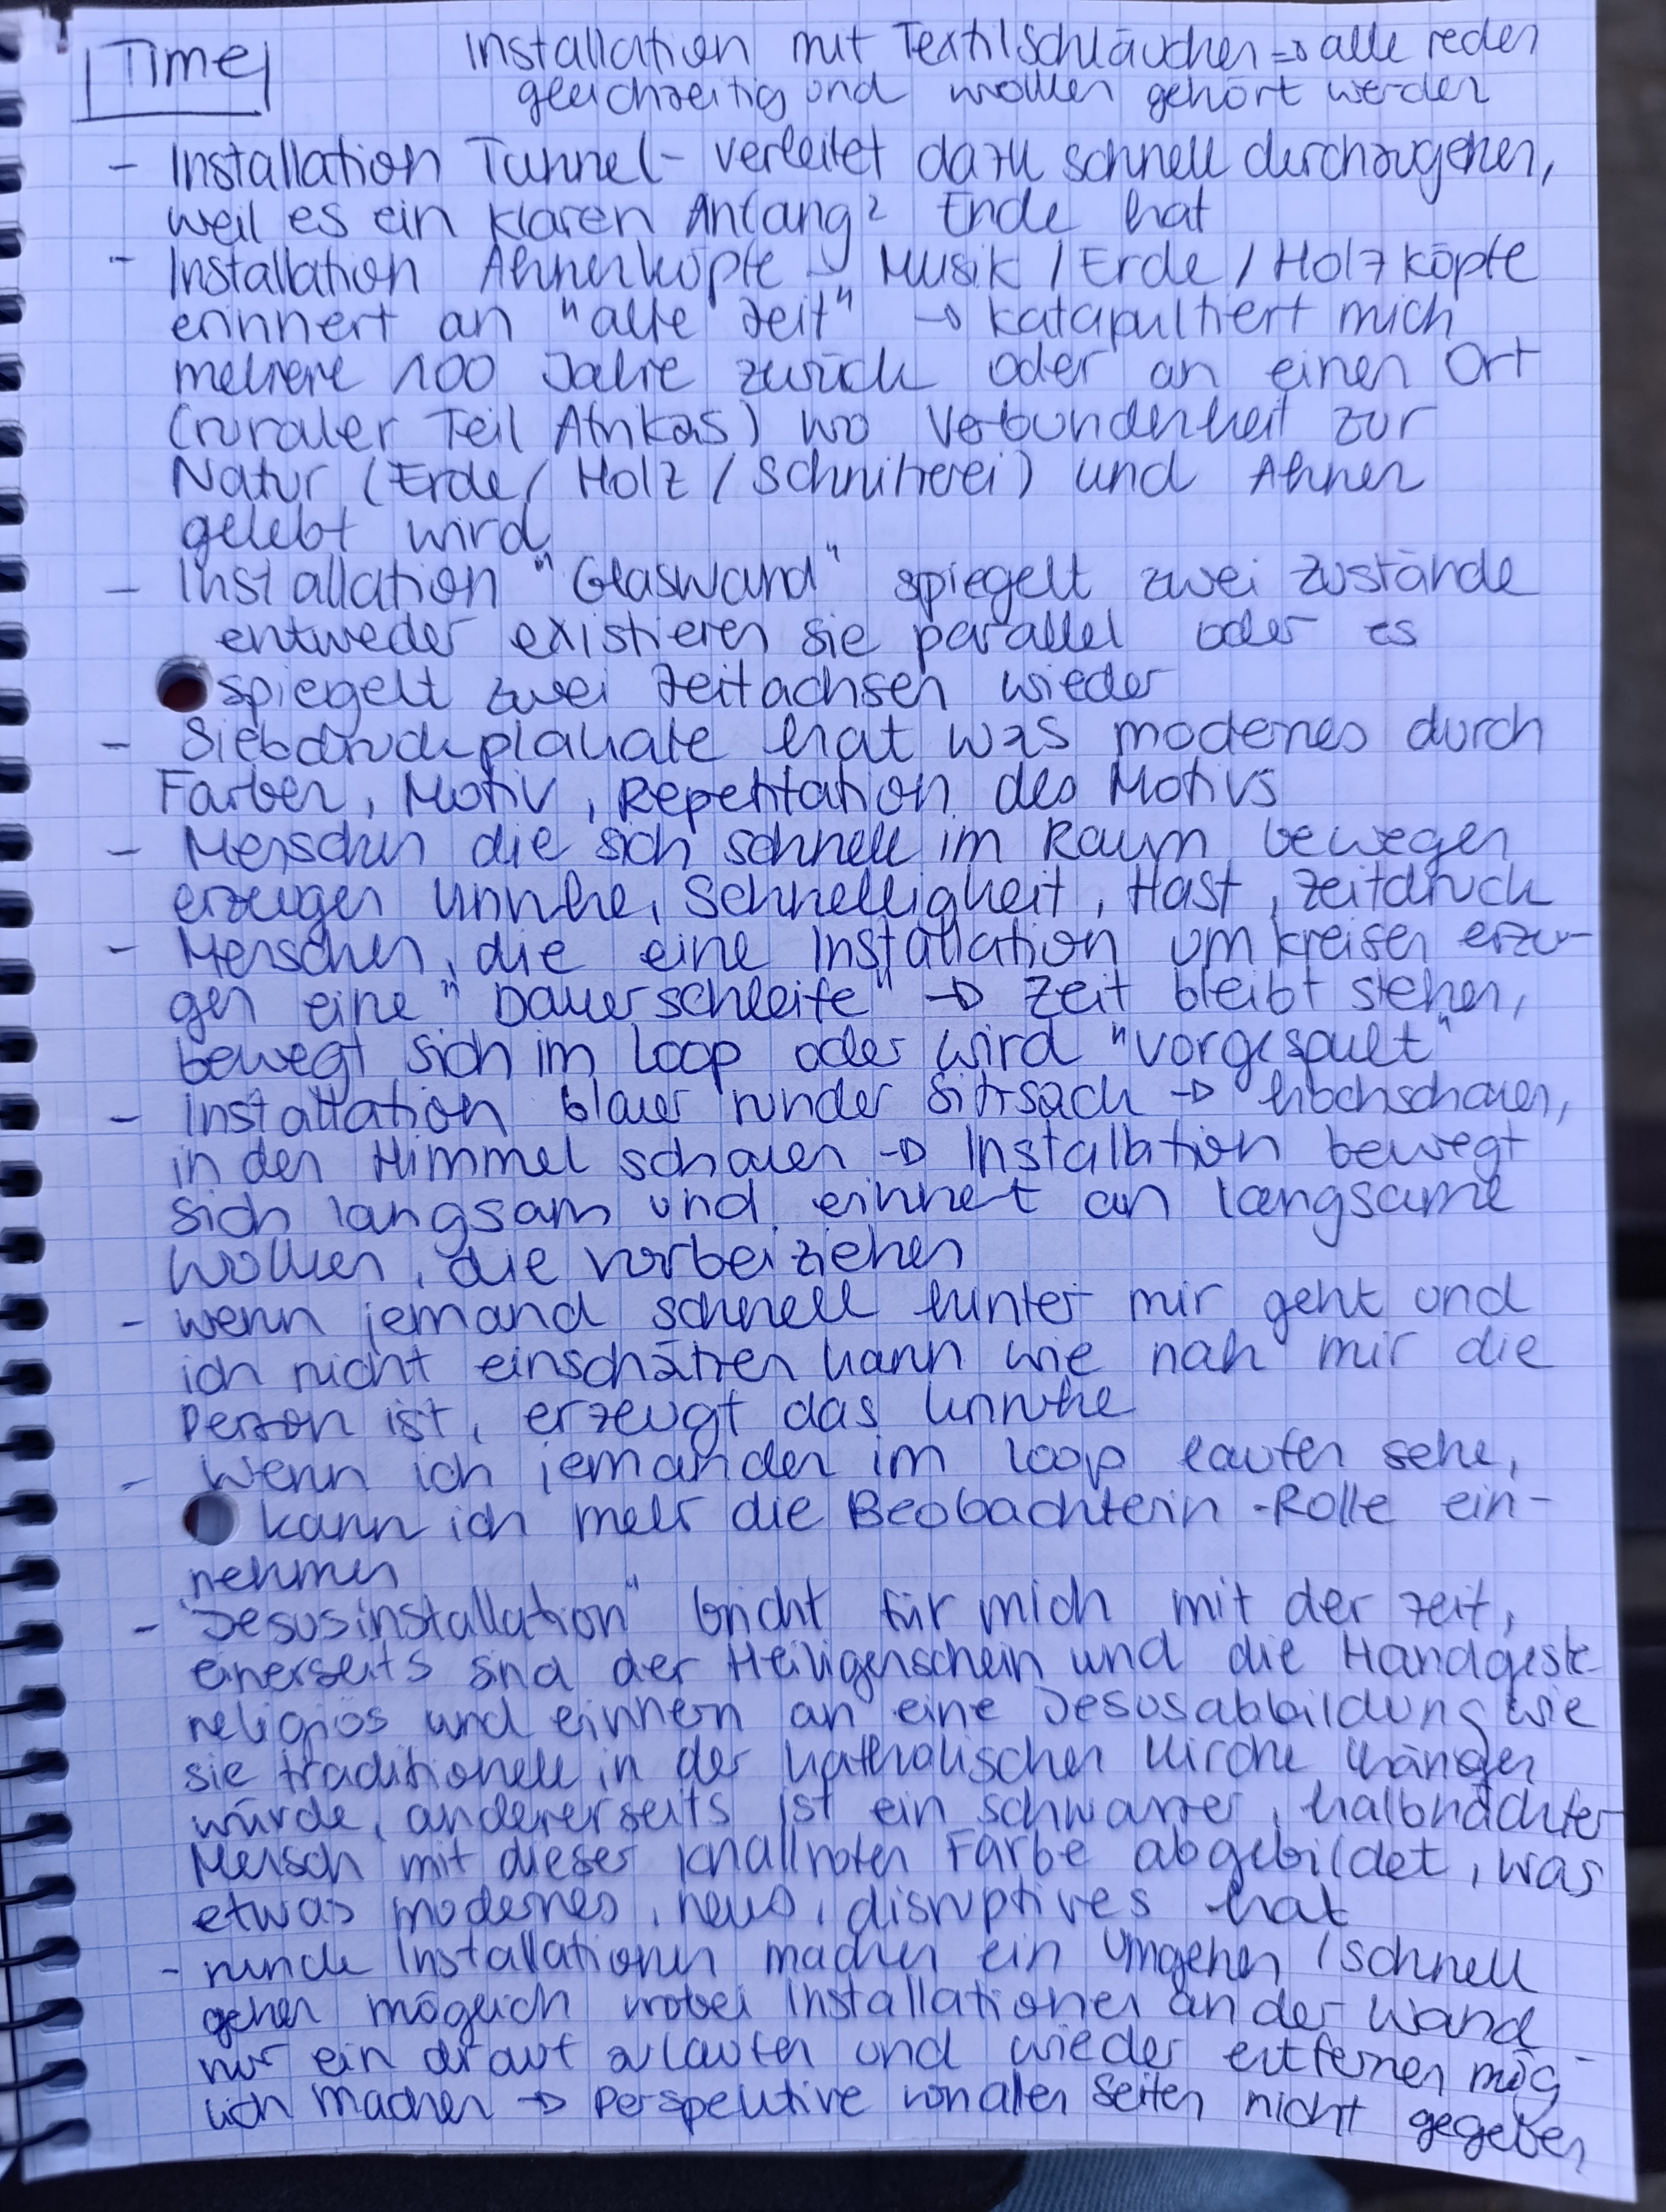 Time
Installation mit Textilschläuchen => alle reden
gleichzeitig und wollen gehört werden
- Installation Tunnel - verleitet dazu schnell durchzugehen,
weil es ein klaren Anfang & Ende hat
- Installation Ahnenköpfe → Musik / Erde / Holzköpfe
erinnert an "alte Zeit" → katapultiert mich
mehrere 100 Jahre zurück oder an einen Ort
(ruraler Teil Afrikas) wo Verbundenheit zur
Natur (Erde / Holz / Schnitzerei) und Ahnen
gelebt wird
- Installation "Glaswand" spiegelt zwei Zustände
entweder existieren sie parallel oder es
spiegelt zwei Zeitachsen wieder
- Siebdruckplakate hat was modernes durch
Farben, Motiv, Repetitation des Motivs
- Menschen die sich schnell im Raum bewegen
erzeugen Unruhe, Schnelligkeit, Hast, Zeitdruck
- Menschen, die eine Installation umkreisen erzeu-
gen eine "Dauerschleife" → Zeit bleibt stehen,
bewegt sich im Loop oder wird "vorgespult"
- Installation blauer runder Sitzsack → hochschauen,
in den Himmel schauen → Installation bewegt
sich langsam und erinnert an langsame
Wolken, die vorbeiziehen
- wenn jemand schnell hinter mir geht und
ich nicht einschätzen kann wie nah mir die
Person ist, erzeugt das Unruhe
- Wenn ich jemanden im loop laufen sehe,
kann ich mehr die Beobachterin-Rolle ein-
nehmen
- "Jesusinstallation" bricht für mich mit der Zeit,
einerseits sind der Heiligenschein und die Handgeste
religiös und erinnern an eine Jesusabbildung wie
sie traditionell in der katholischen Kirche hängen
würde, andererseits ist ein schwarzer, halbnackter
Mensch mit dieser knallroten Farbe abgebildet, was
etwas modernes, neues, disruptives hat
- runde Installationen machen ein Umgehen / schnell
gehen möglich wobei Installationen an der Wand
nur ein drauf zulaufen und wieder entfernen mög-
lich machen → Perspektive von allen Seiten nicht gegeben